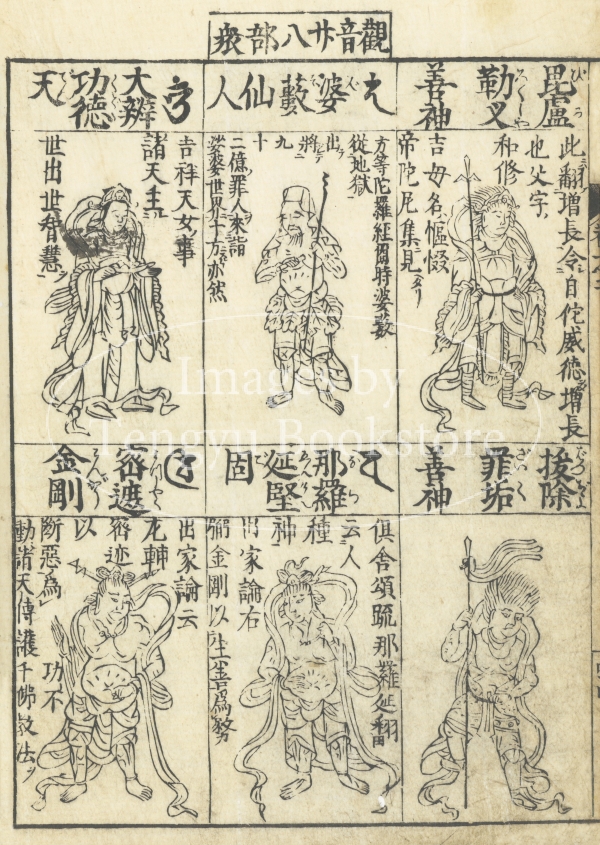 觀音廿八部衆
毘盧
勒叉
善神
此翻増長令自佗威德増長
也父字
和修
吉母名慪惙
帝陀尼集見
婆藪仙人
方等陀羅經爾時婆藪
從地獄
出將九十
二億罪人來詣
娑婆世界十方亦然
大辨
功徳
天
吉祥天女事
諸天主
世出世智慧
後除
罪垢
善神
那羅
延堅
固
倶舎頌疏那羅延翻
云人
種
神
出家論右
弼金剛以生善爲務
密遮
金剛
出家論云
左輔
密迹
以
断惡爲
功不
動諸天傳護千佛敎法
Images by
Tengyu Bookstore